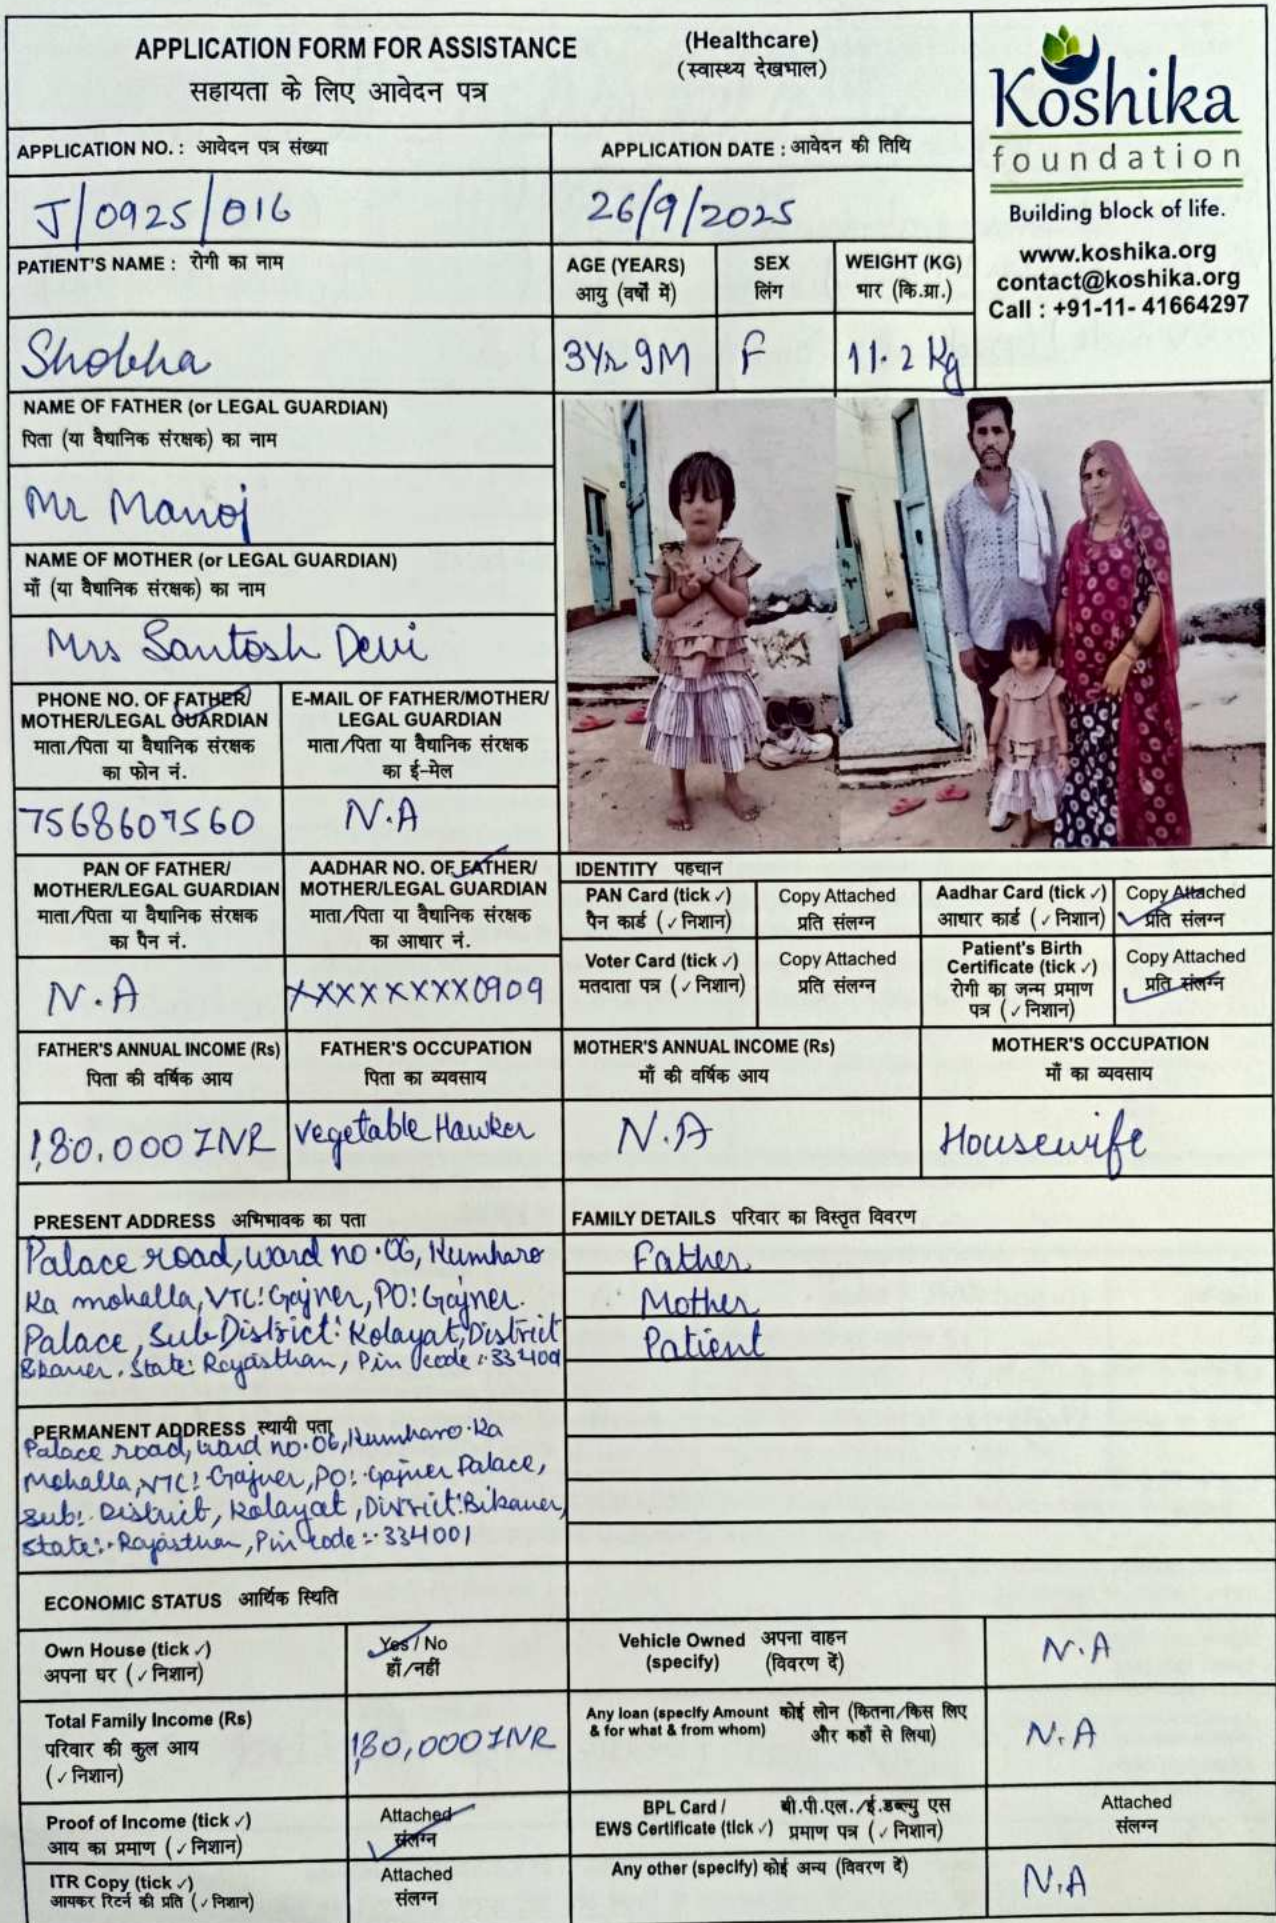 APPLICATION FORM FOR ASSISTANCE
सहायता के लिए आवेदन पत्र
(Healthcare)
(स्वास्थ्य देखभाल)
Koshika
foundation
Building block of life.
www.koshika.org
contact@koshika.org
Call : +91-11- 41664297
APPLICATION NO. : आवेदन पत्र संख्या
APPLICATION DATE : आवेदन की तिथि
J/0925/016
26/9/2025
PATIENT'S NAME : रोगी का नाम
AGE (YEARS)
आयु (वर्षों में)
SEX
लिंग
WEIGHT (KG)
भार (कि.ग्रा.)
Shobha
3Yr 9M
F
11.2 Kg
NAME OF FATHER (or LEGAL GUARDIAN)
पिता (या वैधानिक संरक्षक) का नाम
Mr Manoj
NAME OF MOTHER (or LEGAL GUARDIAN)
माँ (या वैधानिक संरक्षक) का नाम
Mrs Santosh Devi
PHONE NO. OF FATHER/
MOTHER/LEGAL GUARDIAN
माता/पिता या वैधानिक संरक्षक
का फोन नं.
E-MAIL OF FATHER/MOTHER/
LEGAL GUARDIAN
माता/पिता या वैधानिक संरक्षक
का ई-मेल
7568607560
N.A
PAN OF FATHER/
MOTHER/LEGAL GUARDIAN
माता/पिता या वैधानिक संरक्षक
का पैन नं.
AADHAR NO. OF FATHER/
MOTHER/LEGAL GUARDIAN
माता/पिता या वैधानिक संरक्षक
का आधार नं.
N.A
XXXXXXXX0909
IDENTITY पहचान
PAN Card (tick ✓)
पैन कार्ड (✓ निशान)
Copy Attached
प्रति संलग्न
Aadhar Card (tick ✓)
आधार कार्ड (✓ निशान)
Copy Attached
प्रति संलग्न
Voter Card (tick ✓)
मतदाता पत्र (✓ निशान)
Copy Attached
प्रति संलग्न
Patient's Birth
Certificate (tick ✓)
रोगी का जन्म प्रमाण
पत्र (✓ निशान)
Copy Attached
प्रति संलग्न
FATHER'S ANNUAL INCOME (Rs)
पिता की वर्षिक आय
FATHER'S OCCUPATION
पिता का व्यवसाय
MOTHER'S ANNUAL INCOME (Rs)
माँ की वर्षिक आय
MOTHER'S OCCUPATION
माँ का व्यवसाय
1,80,000 INR
Vegetable Hawker
N.A
Housewife
PRESENT ADDRESS अभिभावक का पता
Palace road, ward no. 06, Kumharo
Ka mohalla, VTC: Gajner, PO: Gajner
Palace, Sub District: Kolayat, District
Bikaner, State: Rajasthan, Pin code :- 334001
FAMILY DETAILS परिवार का विस्तृत विवरण
Father
Mother
Patient
PERMANENT ADDRESS स्थायी पता
Palace road, ward no. 06, Kumharo Ka
Mohalla, VTC: Gajner, PO: Gajner Palace,
Sub: District, Kolayat, District: Bikaner,
State:- Rajasthan, Pin code :- 334001
ECONOMIC STATUS आर्थिक स्थिति
Own House (tick ✓)
अपना घर (✓ निशान)
Yes / No
हाँ/नहीं
Vehicle Owned अपना वाहन
(specify) (विवरण दें)
N.A
Total Family Income (Rs)
परिवार की कुल आय
(✓ निशान)
1,80,000 INR
Any loan (specify Amount कोई लोन (कितना/किस लिए
& for what & from whom) और कहाँ से लिया)
N.A
Proof of Income (tick ✓)
आय का प्रमाण (✓ निशान)
Attached
संलग्न
BPL Card / बी.पी.एल./ई.डब्ल्यु एस
EWS Certificate (tick ✓) प्रमाण पत्र (✓ निशान)
Attached
संलग्न
ITR Copy (tick ✓)
आयकर रिटर्न की प्रति (✓ निशान)
Attached
संलग्न
Any other (specify) कोई अन्य (विवरण दें)
N.A